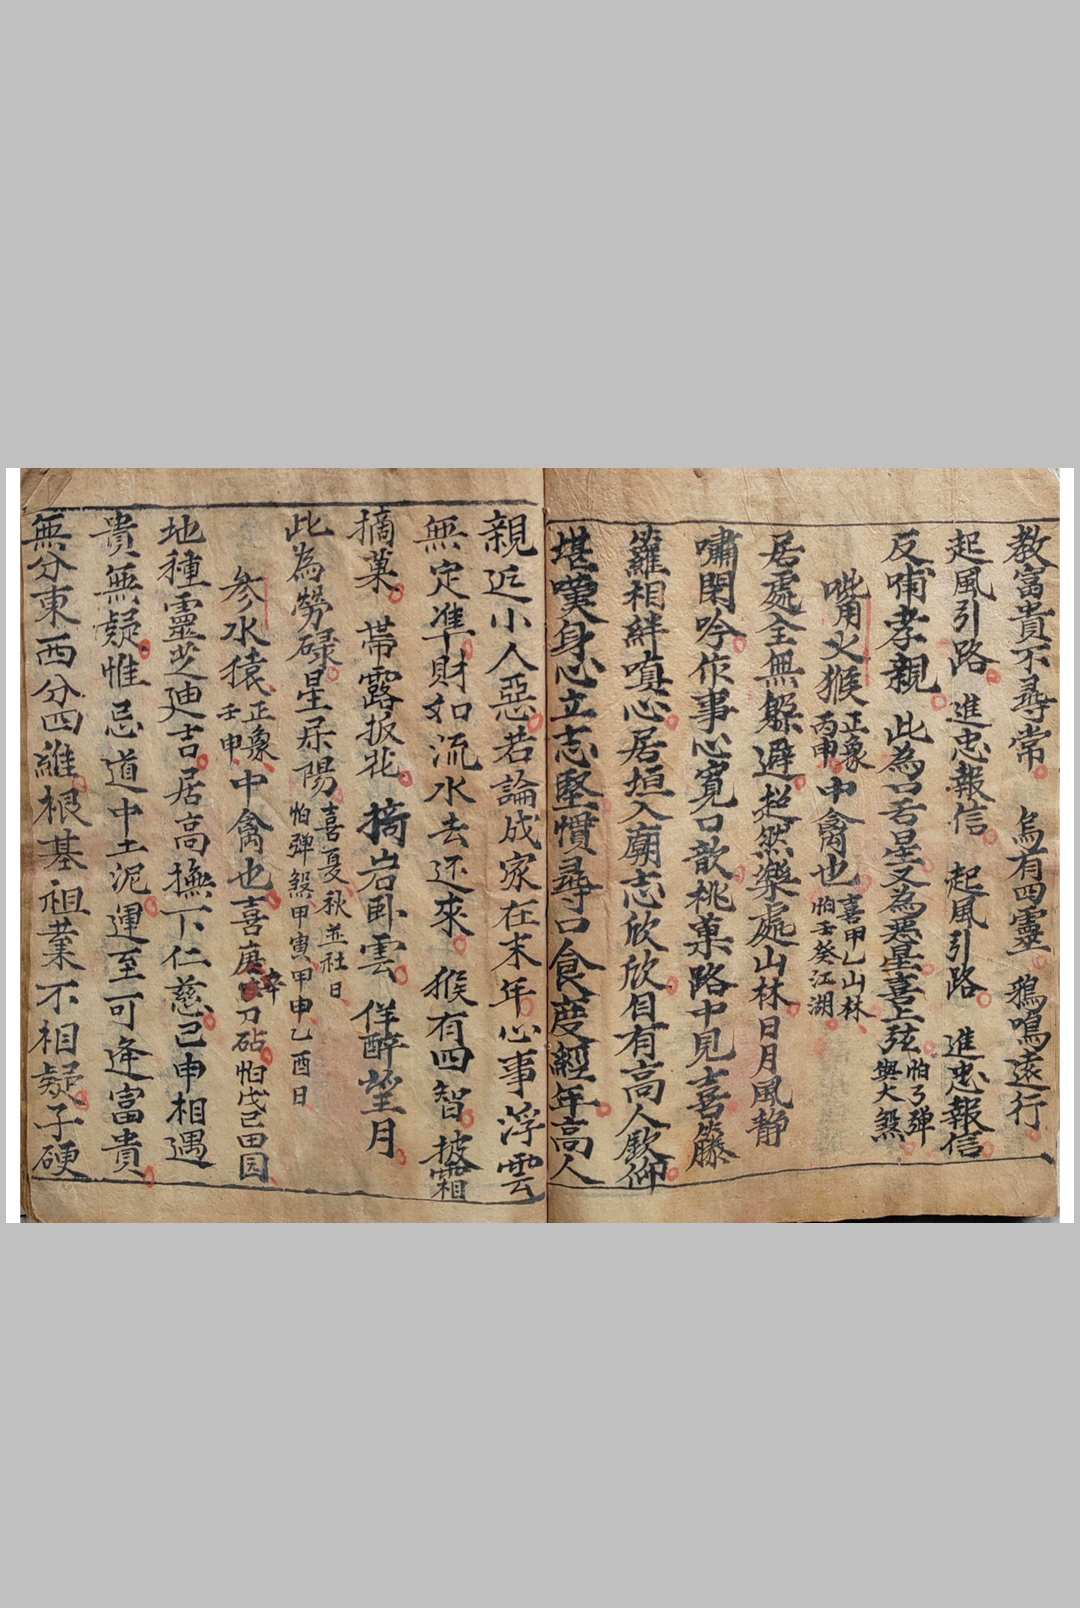 教富貴不尋常 烏有四靈 鴉鳴遠行
起風引路 進忠報信 起風引路 進忠報信
反哺孝親 此為口舌星又為惡星喜上弦 怕弓彈 與大煞
嘴火猴 正象 丙申 中禽也 喜甲乙山林 怕壬癸江湖
居處全無躲避 超然樂處山林 日月風静
嘯閑吟 作事心寬口歆 桃菓路中見喜 籐
蘿相絆嗔心 居垣入廟志欣欣 自有高人欽仰
堪嘆身心立志堅 慣尋口食度經年 高人
親近小人惡 若論成家在末年 心事浮雲
無定準 財如流水去还來 猴有四智 披霜
摘菓 帯露扳花 摘岩卧雲 佯醉望月
此為勞碌星 杘陽 喜夏秋並社日 怕彈煞甲寅甲申乙酉日
參水猿 正象 壬申 中禽也 喜庚辛刀砧 怕戊己田园
地種靈芝廸吉 居高撫下仁慈 己申相遇
貴無疑 惟忌道中土泥 運至可逢富貴
無分東西分四維 根基祖業不相疑 子硬